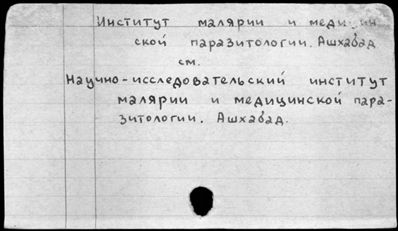 Институт малярии и медицин-
ской паразитологии. Ашхабад
см.
Научно-исследовательский институт
малярии и медицинской пара-
зитологии. Ашхабад.